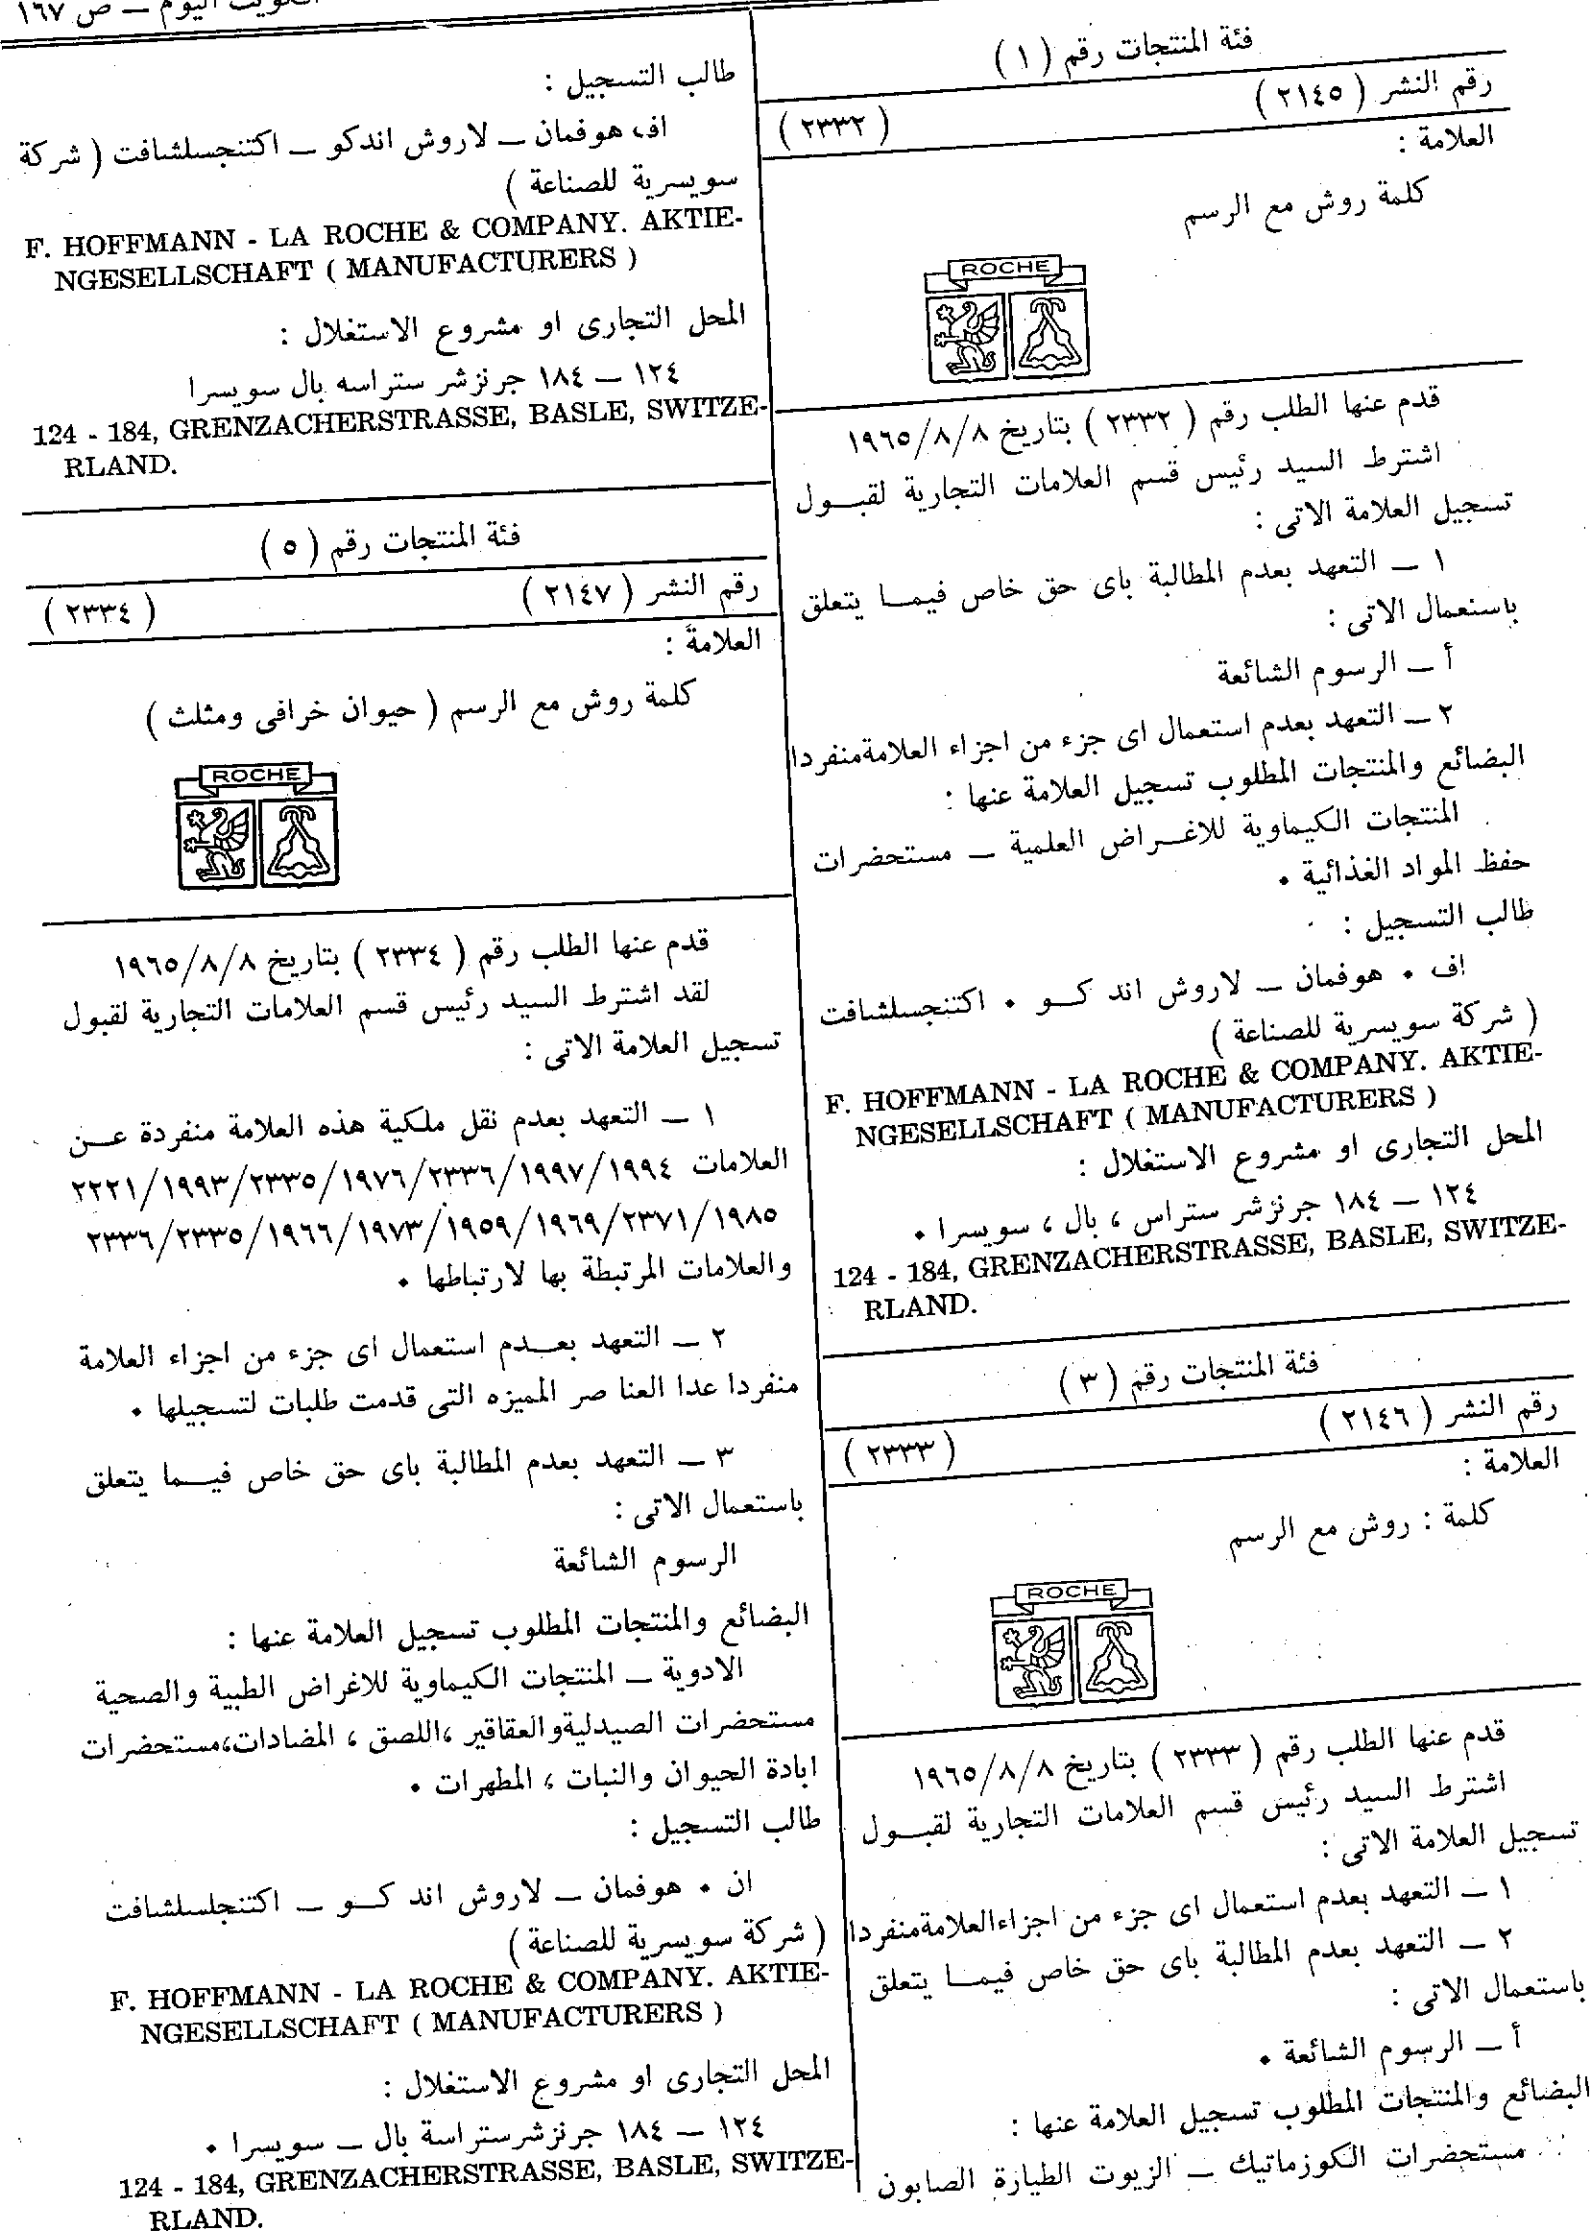 الكويت اليوم — ص ١٦٧
فئة المنتجات رقم ( ١ )
رقم النشر ( ٢١٤٥ )
( ٢٣٣٢ )
العلامة :
كلمة روش مع الرسم
ROCHE
قدم عنها الطلب رقم ( ٢٣٣٢ ) بتاريخ ١٩٦٥/٨/٨
اشترط السيد رئيس قسم العلامات التجارية لقبول
تسجيل العلامة الاتى :
١ — التعهد بعدم المطالبة باى حق خاص فيما يتعلق
باستعمال الاتى :
أ — الرسوم الشائعة
٢ — التعهد بعدم استعمال اى جزء من اجزاء العلامةمنفردا
البضائع والمنتجات المطلوب تسجيل العلامة عنها :
المنتجات الكيماوية للاغراض العلمية — مستحضرات
حفظ المواد الغذائية .
طالب التسجيل :
اف . هوفمان — لاروش اند كو . اكتنجسلشافت
( شركة سويسرية للصناعة )
F. HOFFMANN - LA ROCHE & COMPANY. AKTIE-
NGESELLSCHAFT ( MANUFACTURERS )
المحل التجارى او مشروع الاستغلال :
١٢٤ — ١٨٤ جرنزشر ستراس ، بال ، سويسرا .
124 - 184, GRENZACHERSTRASSE, BASLE, SWITZE-
RLAND.
فئة المنتجات رقم ( ٣ )
رقم النشر ( ٢١٤٦ )
( ٢٣٣٣ )
العلامة :
كلمة : روش مع الرسم
ROCHE
قدم عنها الطلب رقم ( ٢٣٣٣ ) بتاريخ ١٩٦٥/٨/٨
اشترط السيد رئيس قسم العلامات التجارية لقبول
تسجيل العلامة الاتى :
١ — التعهد بعدم استعمال اى جزء من اجزاءالعلامةمنفردا
٢ — التعهد بعدم المطالبة باى حق خاص فيما يتعلق
باستعمال الاتى :
أ — الرسوم الشائعة .
البضائع والمنتجات المطلوب تسجيل العلامة عنها :
مستحضرات الكوزماتيك — الزيوت الطيارة الصابون
طالب التسجيل :
اف، هوفمان — لاروش اندكو — اكتنجسلشافت ( شركة
سويسرية للصناعة )
F. HOFFMANN - LA ROCHE & COMPANY. AKTIE-
NGESELLSCHAFT ( MANUFACTURERS )
المحل التجارى او مشروع الاستغلال :
١٢٤ — ١٨٤ جرنزشر ستراسه بال سويسرا
124 - 184, GRENZACHERSTRASSE, BASLE, SWITZE-
RLAND.
فئة المنتجات رقم ( ٥ )
رقم النشر ( ٢١٤٧ )
( ٢٣٣٤ )
العلامة :
كلمة روش مع الرسم ( حيوان خرافى ومثلث )
ROCHE
قدم عنها الطلب رقم ( ٢٣٣٤ ) بتاريخ ١٩٦٥/٨/٨
لقد اشترط السيد رئيس قسم العلامات التجارية لقبول
تسجيل العلامة الاتى :
١ — التعهد بعدم نقل ملكية هذه العلامة منفردة عن
العلامات ٢٢٢١/١٩٩٣/٢٣٣٥/١٩٧٦/٢٣٣٦/١٩٩٧/١٩٩٤
٢٣٣٦/٢٣٣٥/١٩٦٦/١٩٧٣/١٩٥٩/١٩٦٩/٢٣٧١/١٩٨٥
والعلامات المرتبطة بها لارتباطها .
٢ — التعهد بعدم استعمال اى جزء من اجزاء العلامة
منفردا عدا العنا صر المميزه التى قدمت طلبات لتسجيلها .
٣ — التعهد بعدم المطالبة باى حق خاص فيما يتعلق
باستعمال الاتى :
الرسوم الشائعة
البضائع والمنتجات المطلوب تسجيل العلامة عنها :
الادوية — المنتجات الكيماوية للاغراض الطبية والصحية
مستحضرات الصيدليةوالعقاقير ،اللصق ، المضادات،مستحضرات
ابادة الحيوان والنبات ، المطهرات .
طالب التسجيل :
ان . هوفمان — لاروش اند كو — اكتنجلسلشافت
( شركة سويسرية للصناعة )
F. HOFFMANN - LA ROCHE & COMPANY. AKTIE-
NGESELLSCHAFT ( MANUFACTURERS )
المحل التجارى او مشروع الاستغلال :
١٢٤ — ١٨٤ جرنزشرستراسة بال — سويسرا .
124 - 184, GRENZACHERSTRASSE, BASLE, SWITZE-
RLAND.